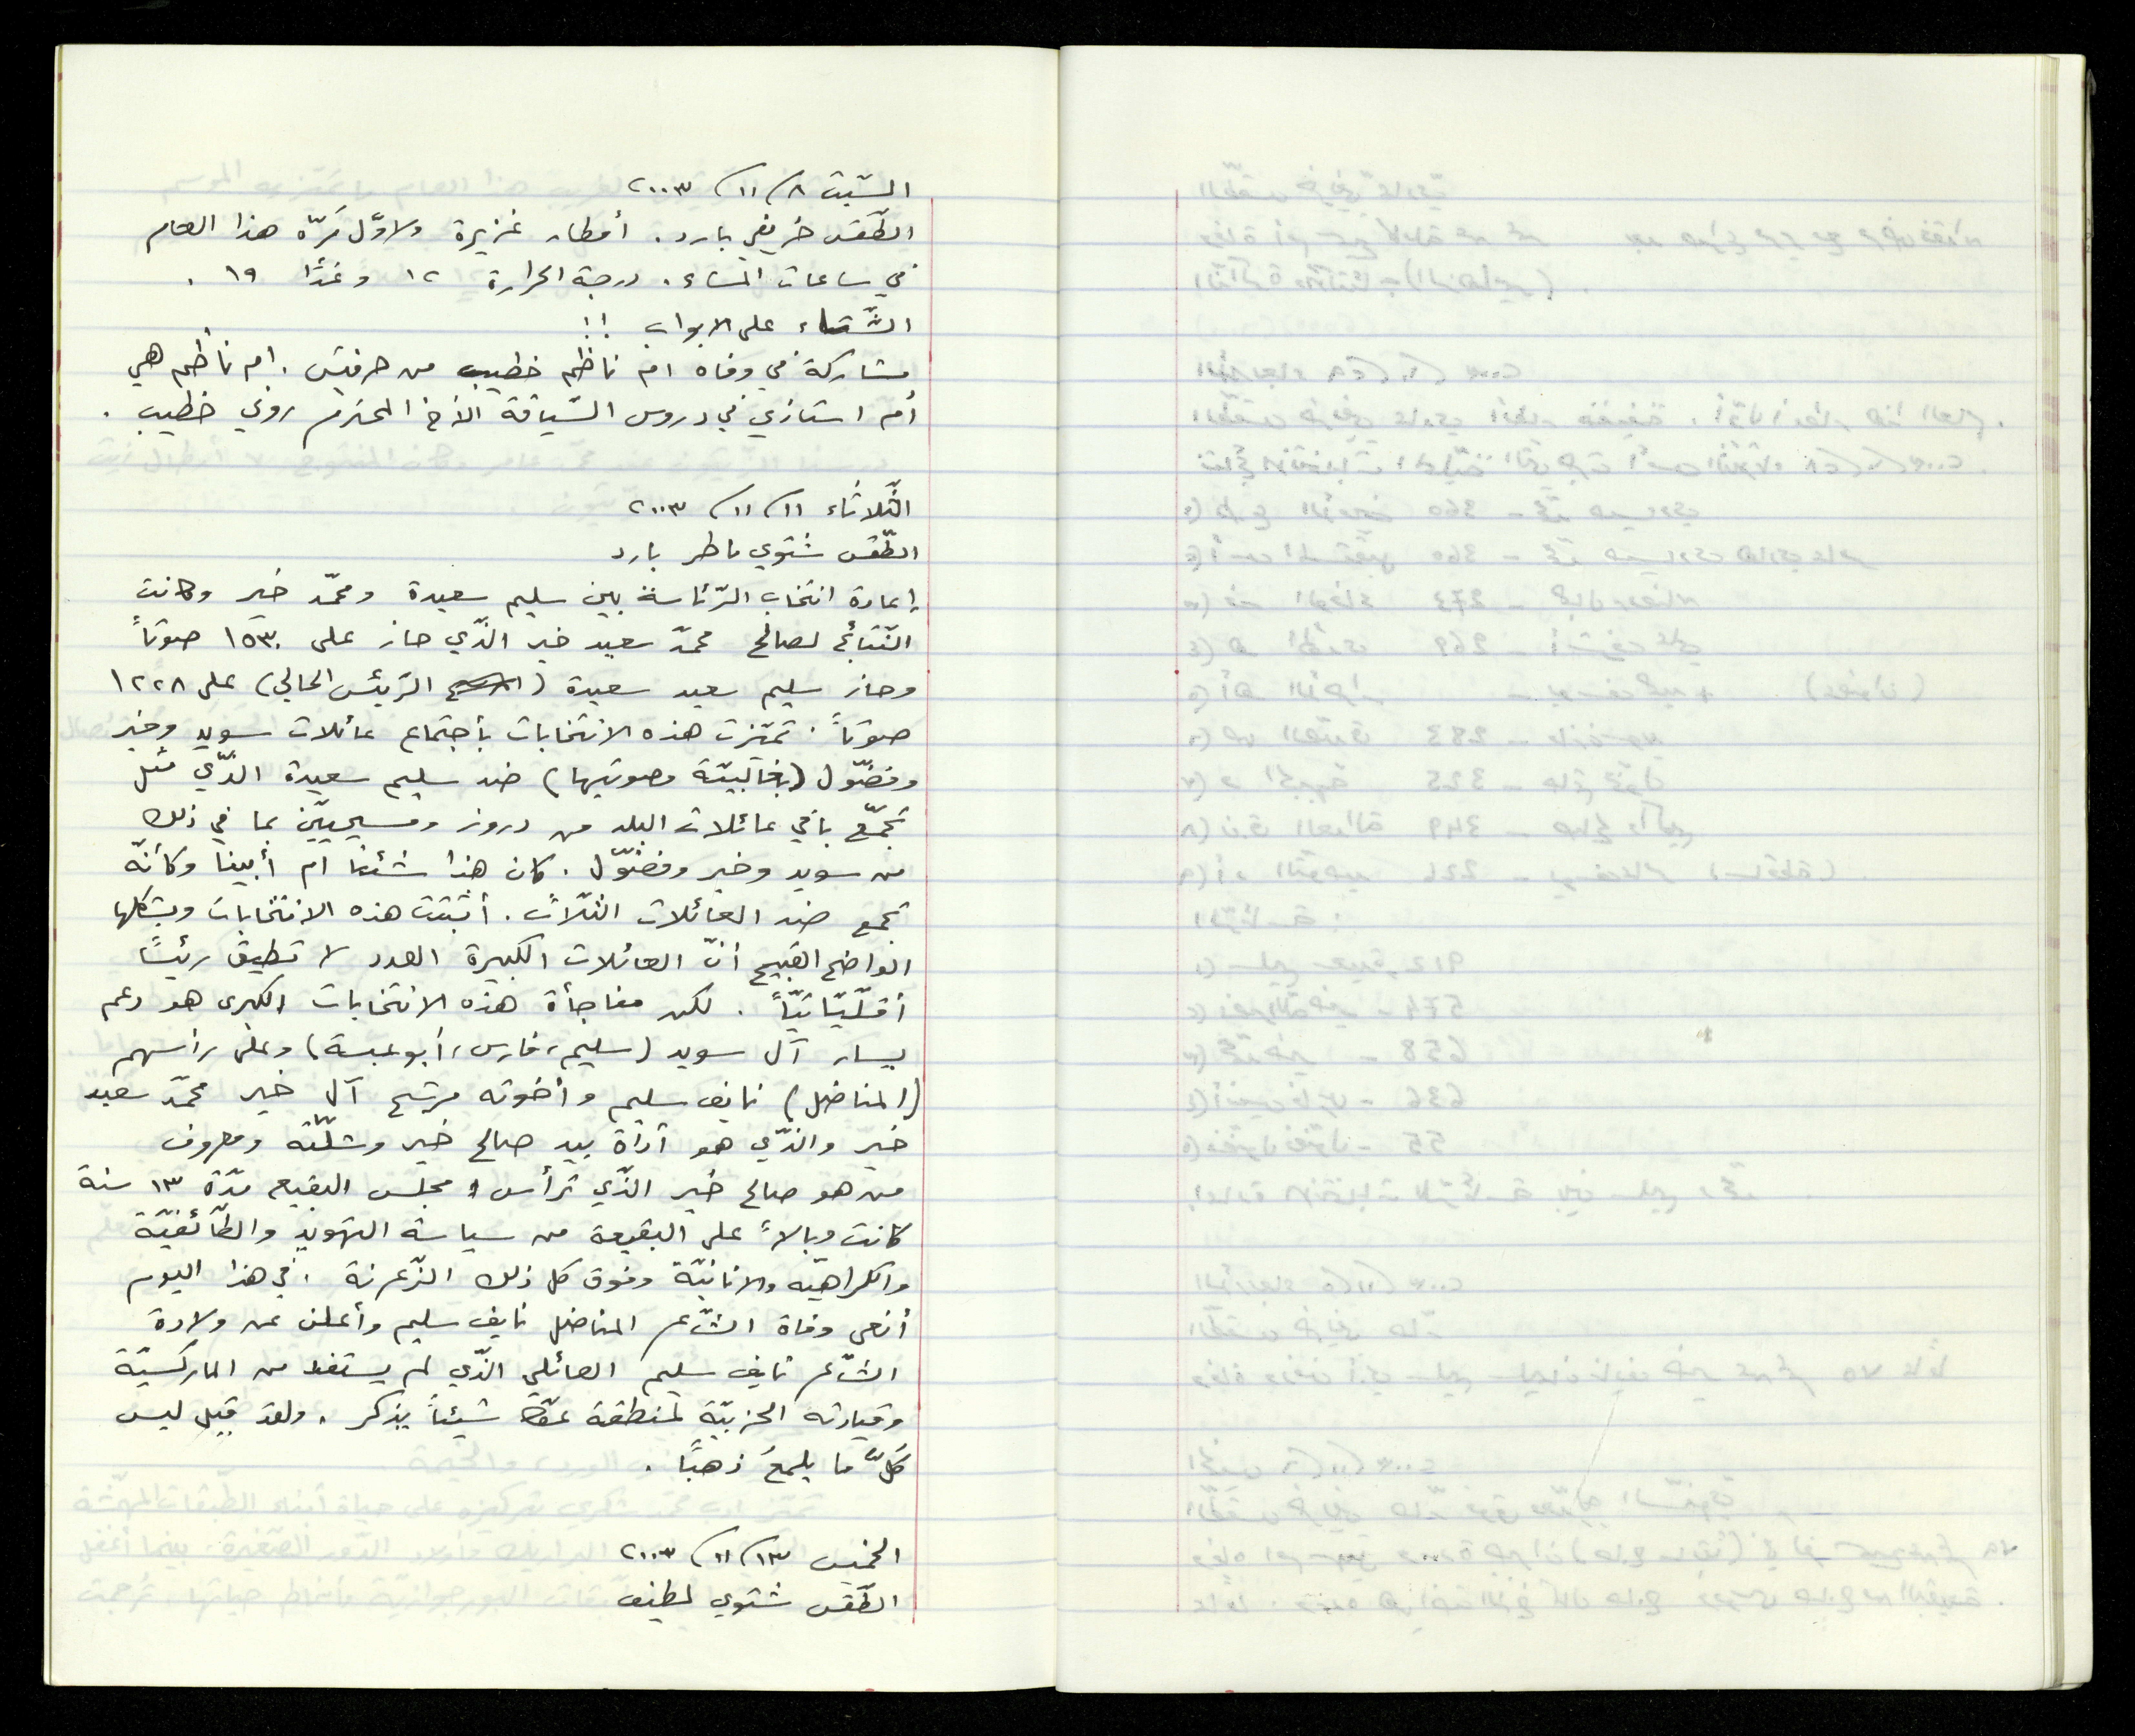 السّبت ٨/ ١١/ ٢٠٠٣
الطّقس خريفي بارد. أمطار غزيرة ولاوّل مَرّه هذا العام
في ساعات المساء. درجة الحرارة ١٢ وغدًا ١٩ .
الشّتاء على الابواب !!
مشاركة في وفاه ام ناظم خطيب من حرفيش. ام ناظم هي
أمّ استازي في دروس السّياقة الأخ المحترم روني خطيب .
الثّلاثاء ١١/ ١١/ ٢٠٠٣
الطّقس شتوي ماطر بارد
إعادة انتخاب الرّئاسة بين سليم سعيدة ومحمّد خير وكانت
النّتائج لصالح محمدّ سعيد خير الذّي حاز على ١٥٣٠ صوتاً
وحاز سليم سعيد سعيدة (الرّيئس الحالي) على ١٢٢٨
صوتاً. تمّيزت هذه الانتخابات بأجتماع عائلات سويد وخير
وفضّول (بغالبيّة مصوتيها) ضد سليم سعيدة الذّي مثّل
تجمّع باقي عائلات البلد من دروز ومسيحييّن بما في ذلك
من سويد وخير وفضّول. كان هذا شئنا ام أبينا وكأنّه
تجمع ضد العائلات الثّلاث. أثبتت هذه الانتخابات وبشكلها
الواضح القبيح انّ العائلات الكبيرة العدد لا تطيق رئيسًا
أقلّيّاتيّاً. لكن مفاجأة هذه الانتخابات الكبرى هو دعم
يسار آل سويد (سليم، فارس، أبو عبسة) وعلى رأسهم
(المناضل) نايف سليم وأخوته مرشح آل خير محمّد سعيد
خيّر والذّي هو أداة بيد صالح خير وشلّته ومعروف
من هو صالح خير الذّي ترأس مجلس البقيعه مدّة ١٣ سنة
كانت وبالاً على البقيعة من سياسة التهويد والطّائفيّة
والكراهيّه والانانيّة وفوق كل ذلك الزّعرنة. في هذا اليوم
أنعى وفاة الشّاعر المناضل نايف سليم وأعلن عن ولادة
الشّاعر نايف سليم العائلي الذّي لم يستفد من الماركسيّة
وقيادته الحزبيّة لمنطقة عكّا شيئاً يذكر. ولقد قيل ليس
كلّ ما يلمعُ ذهبًا .
الخميس ١٣/ ١١/ ٢٠٠٣
الطّقس شتوي لطيف